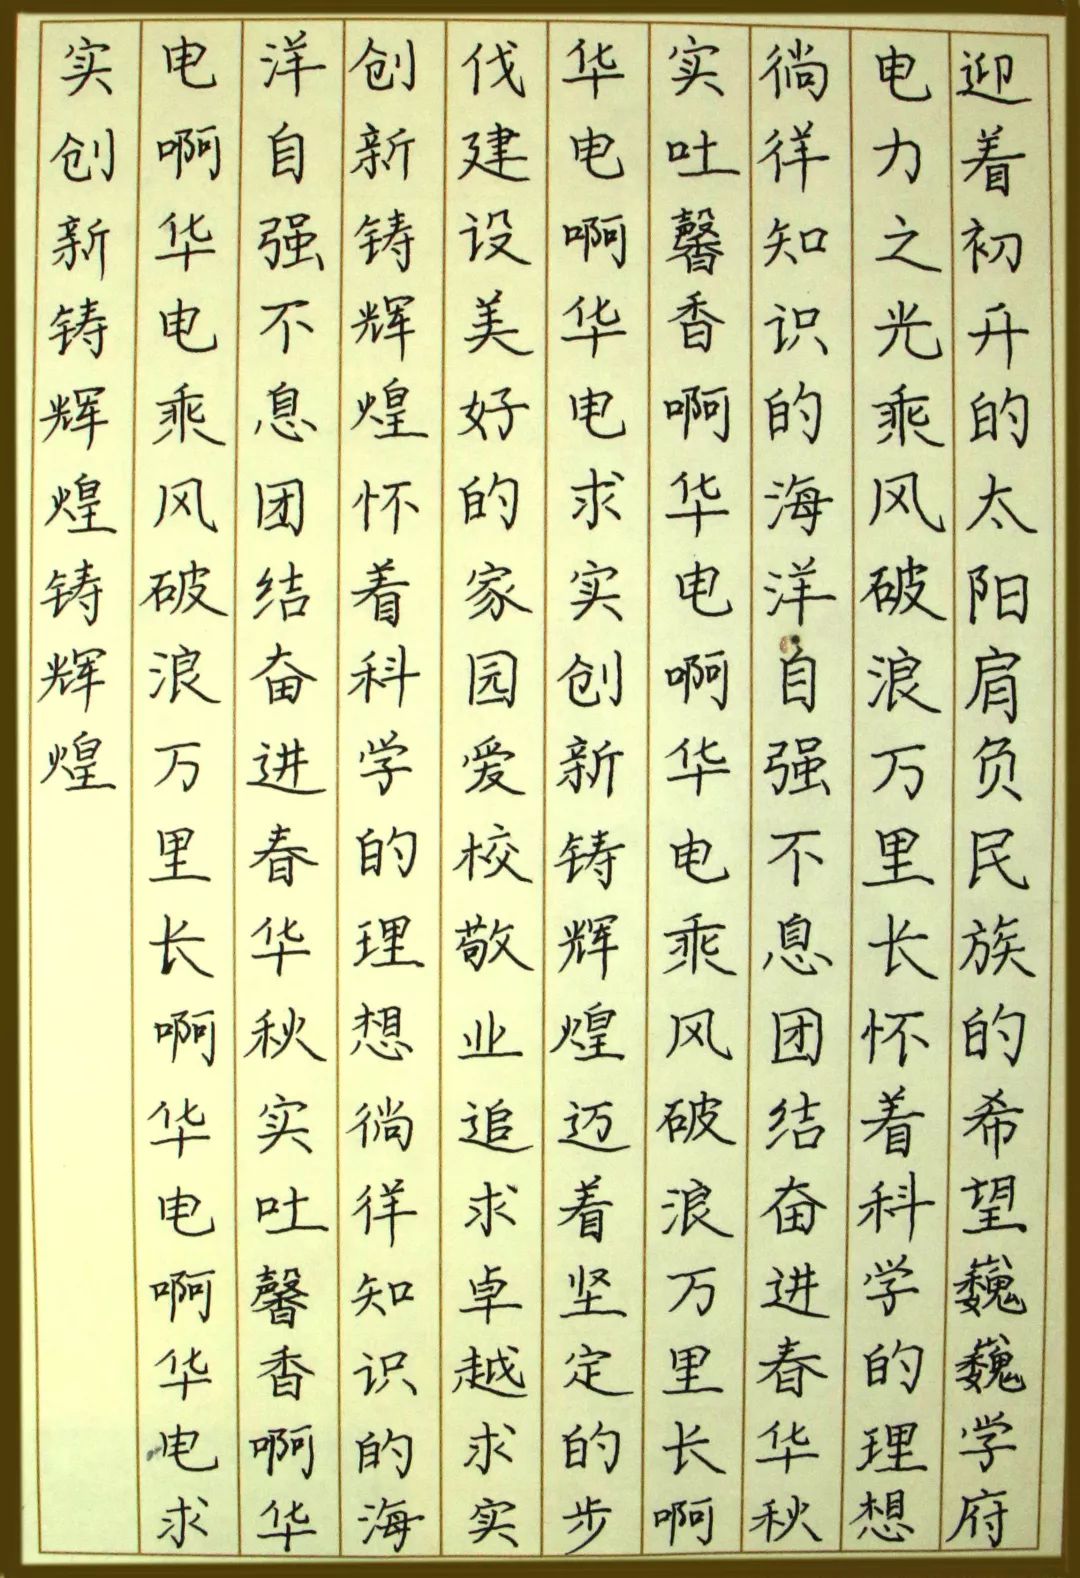 迎着初升的太阳肩负民族的希望巍巍学府
电力之光乘风破浪万里长怀着科学的理想
徜徉知识的海洋自强不息团结奋进春华秋
实吐馨香啊华电啊华电乘风破浪万里长啊
华电啊华电求实创新铸辉煌迈着坚定的步
伐建设美好的家园爱校敬业追求卓越求实
创新铸辉煌怀着科学的理想徜徉知识的海
洋自强不息团结奋进春华秋实吐馨香啊华
电啊华电乘风破浪万里长啊华电啊华电求
实创新铸辉煌铸辉煌